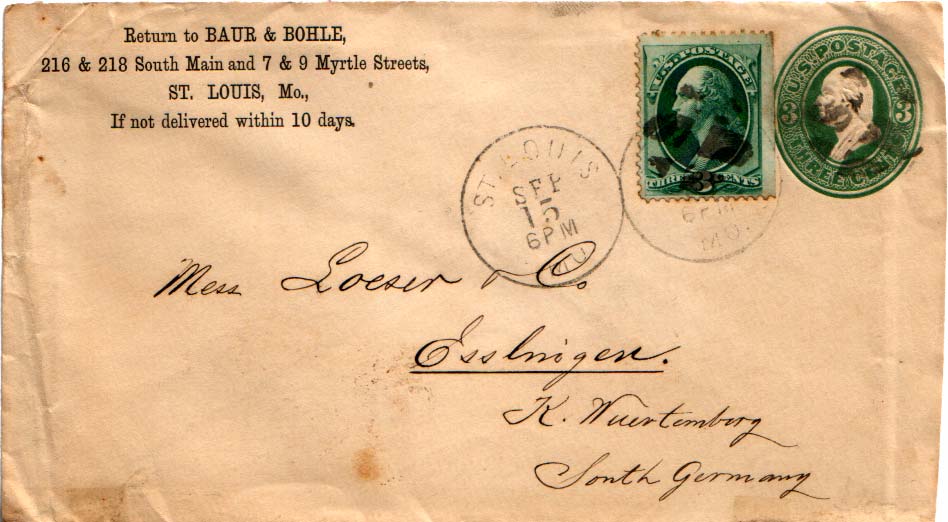 Return to BAUR & BOHLE,
216 & 218 South Main and 7 & 9 Myrtle Streets,
ST. LOUIS, Mo.,
If not delivered within 10 days.
U.S. POSTAGE
THREE CENTS
3
U.S. POSTAGE
3 3
THREE CENTS
ST. LOUIS
SEP
15
6PM
MO.
6PM
MO.
Mess Loeser & Co
Esslingen.
K. Wuertemberg
South Germany